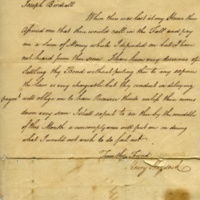 Joseph Birdsall
When thou was last at my House thou
informd me that thou would call in the Fall and pay
me a Sum of Money which I depended on but I have
not heard from thee since I have been desirous of
settling thy Bond without putting thee to any expense
the Law is very changeable but thy conduct in delaying
payment will oblige me to have Recourse thereto unless thou comes
down very soon I shall expect to see thee by the middle
of this Month a noncompliance will put me on doing
what I would not wish to do fail not
From thy Friend